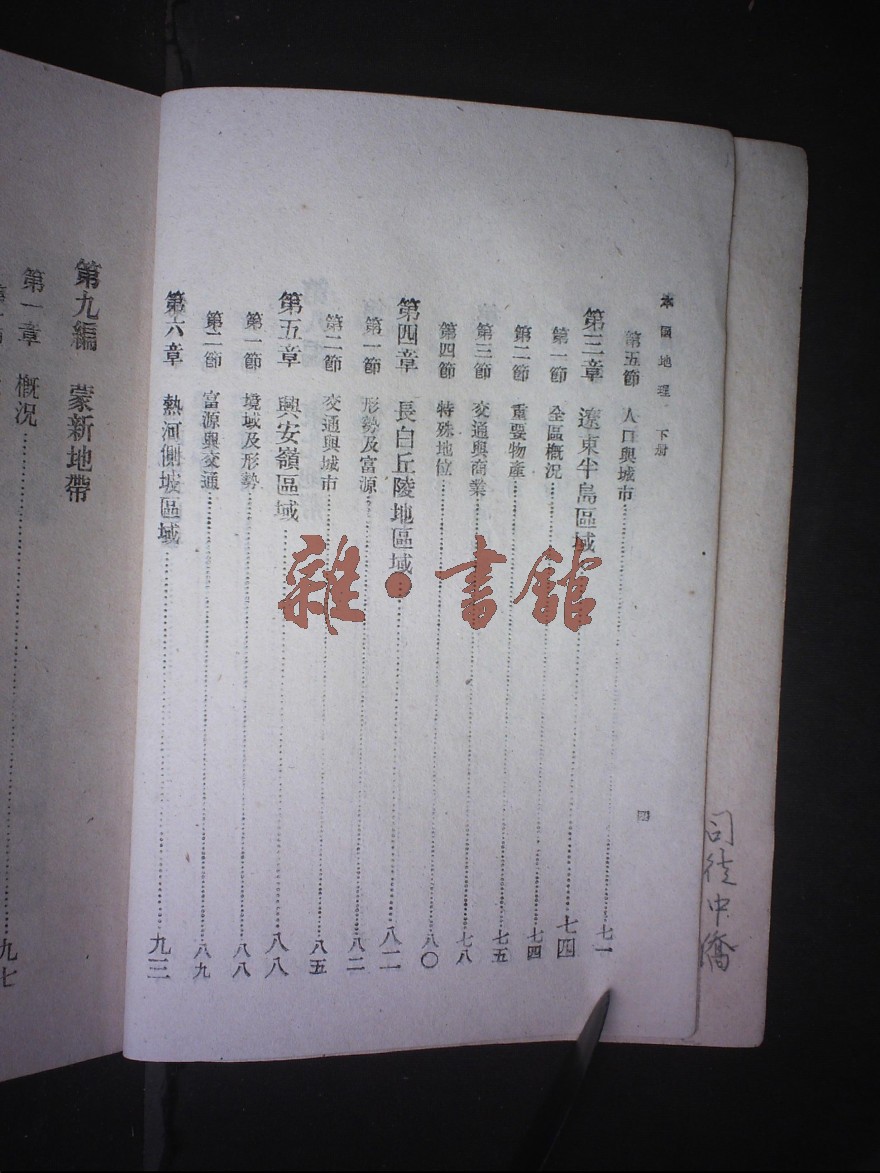 本國地理 下册
第五節 人口與城市 七一
第三章 遼東半島區域 七四
第一節 全區概況 七四
第二節 重要物產 七五
第三節 交通與商業 七八
第四節 特殊地位 八〇
第四章 長白丘陵地區域 八二
第一節 形勢及富源 八二
第二節 交通與城市 八五
第五章 興安嶺區域 八八
第一節 境域及形勢 八八
第二節 富源與交通 八九
第六章 熱河側坡區域 九三
四
第九編 蒙新地帶
第一章 概況 九七
司徒中僑
雜·書館